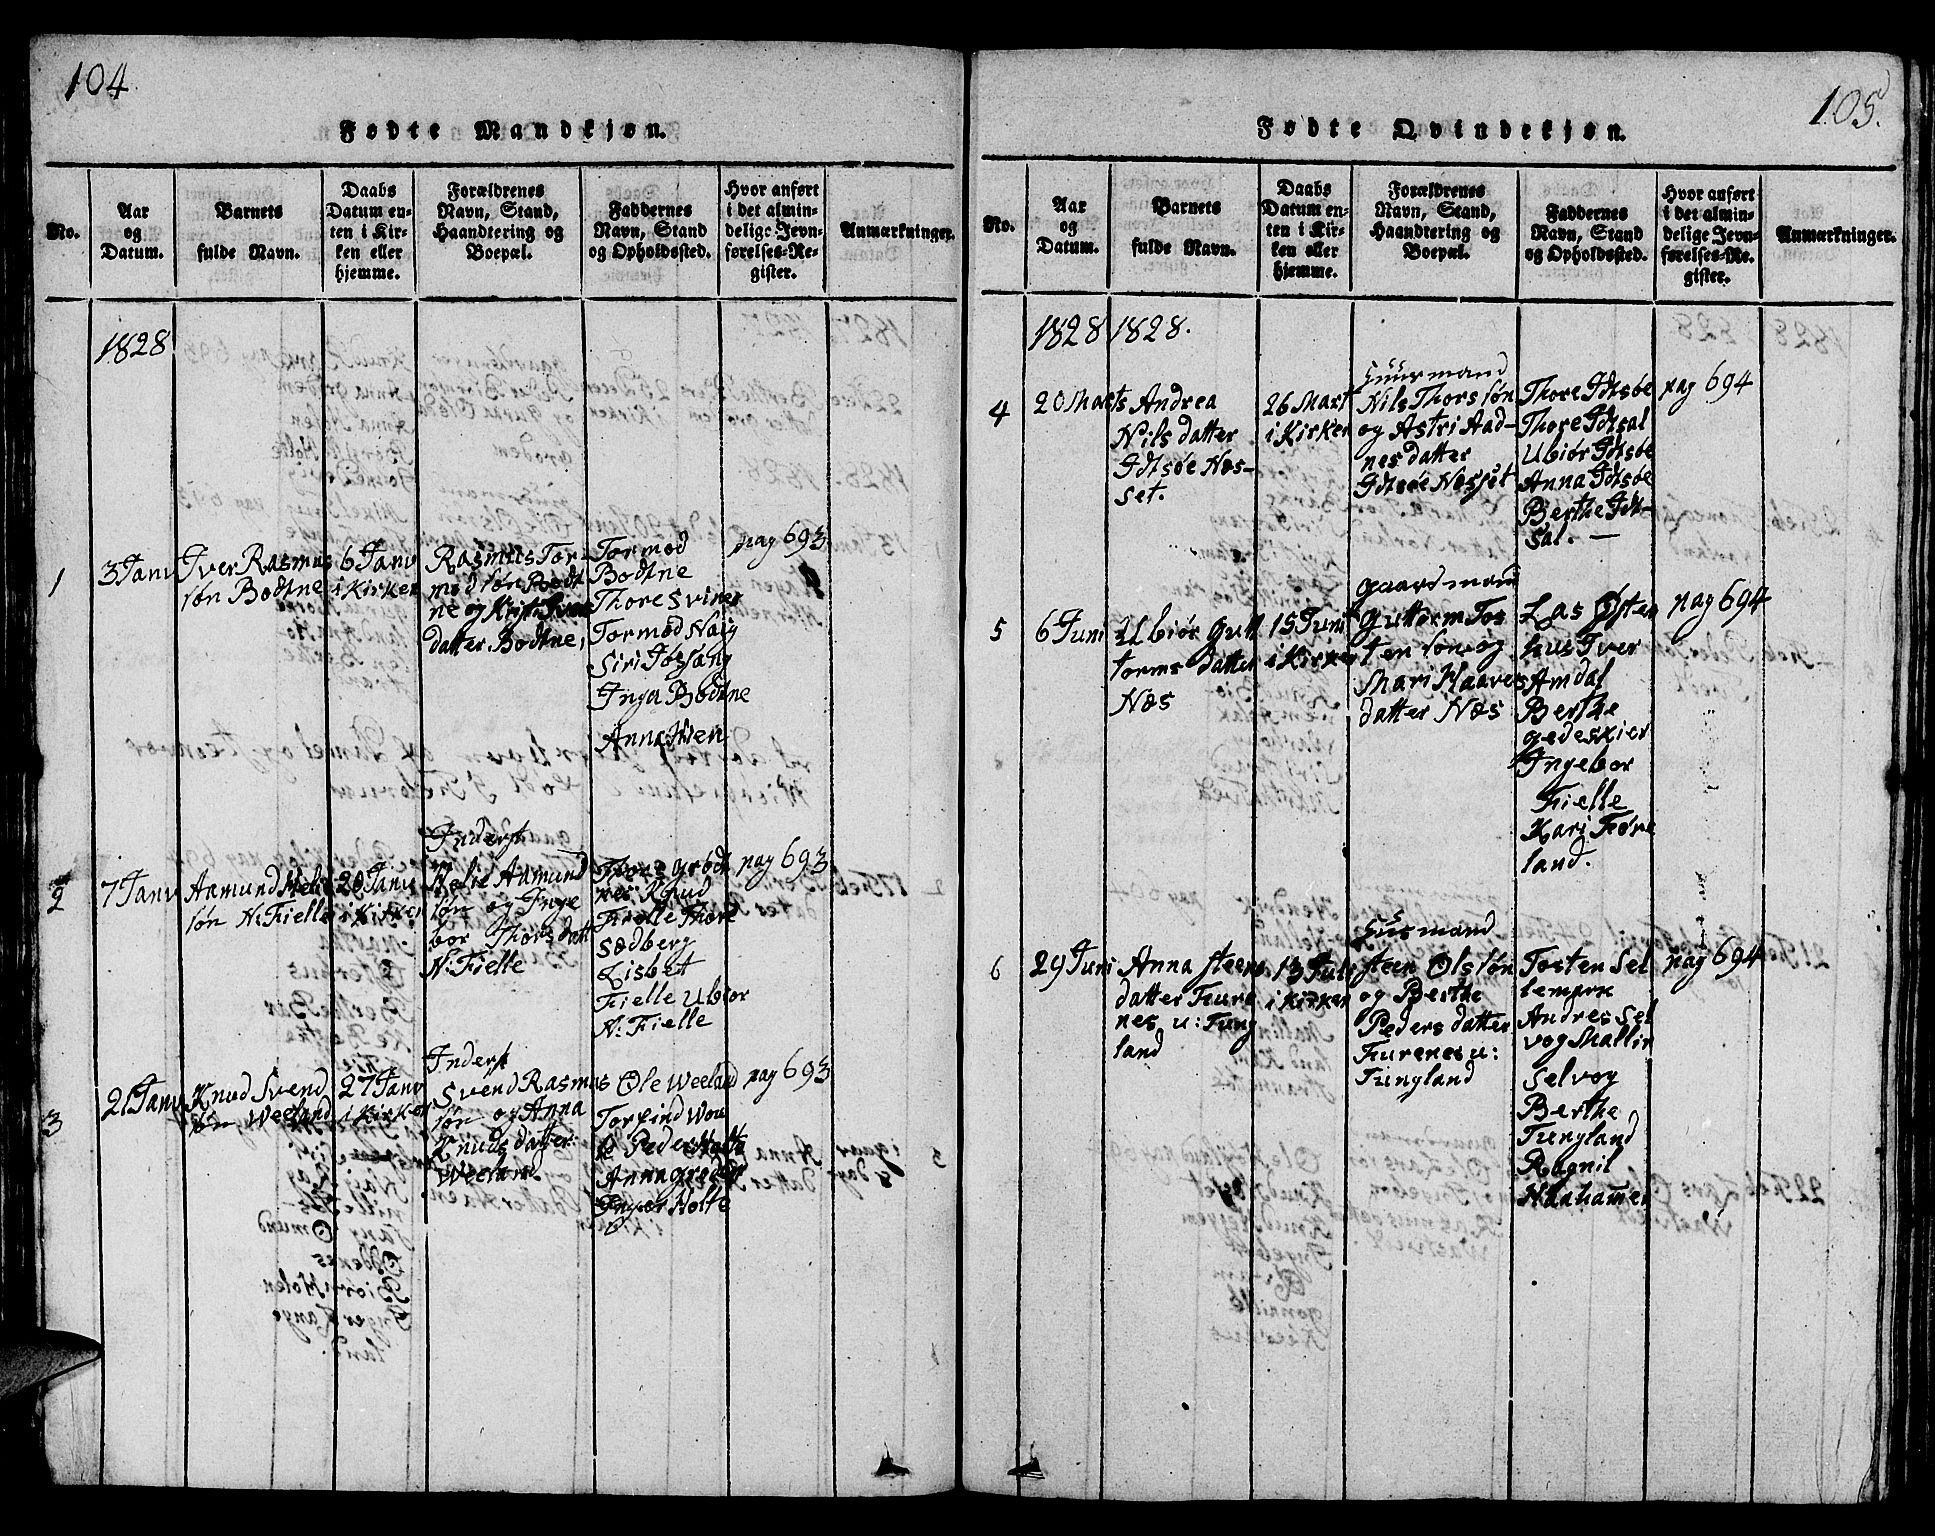 104
Fødte Mandkjøn.
No.
Aar
og
Datum.
Barnets
fulde Navn.
Daabs
Datum en-
ten i Kir-
ken eller
hjemme.
Forældrenes
Navn, Stand,
Haandtering og
Boepæl.
Faddernes
Navn, Stand
og Opholdssted.
Hvor anført
i det almin-
delige Jevn-
førelses-Re-
gister.
Anmærkninger.
1828
1
3 Janv
Iver Rasmus
søn Bodtne
6 Janv
i Kirken
Rasmus Tor-
mod søn Bodt
ne og
datter Bodtne,
Tormod
Bodtne
Thore Svines
Tormod Naig
Siri Jøssang
Inga Bodtne
Anna Hien
pag 693
2
7 Janv
Aamund Helie
søn N: Fielle
20 Janv
i Kirken
Inderst
Helie Aamund
søn og Inge
bor Thorsdatt
N: Fielle
Thore Grødt
nes Knud
Fielle Thore
Sædberg
Lisbet
Fielle Ubiør
N: Fielle
pag 693
3
21 Janv
Knud Svend
søn Weeland
27 Janv
i Kirken
Inderst
Svend Rasmus
søn og Anna
Knuds datter
Weeland
Ole Weeland
Torfind Wou
te Peder Holte
Anna
Inger Holte
pag 693
105
Fødte Qvindekjøn.
No.
Aar
og
Datum.
Barnets
fulde Navn.
Daabs
Datum en-
ten i Kir-
ken eller
hjemme.
Forældrenes
Navn, Stand,
Haandtering og
Boepæl.
Faddernes
Navn, Stand
og Opholdssted.
Hvor anført
i det almin-
delige Jevn-
førelses-Re-
gister.
Anmærkninger.
1828 1828.
4
20 Marts
Andrea
Nils datter
Idtsøe Næs-
set.
26 Mart
i Kirken
Huusmand
Nils Thors søn
og Astri Aad-
nes datter
Idtsøe Næsset
Thore Idtsøe
Thore Idtsal
Ubiør Idtsøe
Anna Idtsøe
Berthe Idt-
sal. —
pag 694
5
6 Juni
Ubiør Gutt
torms datter
Næs
15 Juni
i Kirken
Gaardmand
Guttorm Tos
ten søn og
Mari Haavors
datter Næs
Las Østen
hus Iver
Amdal
Berthe
Gedeskier
Ingebor
Fielle
Kari Føre
land.
pag 694
6
29 Juni
Anna Steens
datter Fure
nes u: Tung
land
13 Juli
i Kirken
Huusmand
Steen Olssøn
og Berthe
Peders datter
Furenes u:
Tungland
Tosten Sel
lemork
Andres Sel
vog Mallin
Selvog
Berthe
Tungland
Ragnil
Naahamer
pag 694